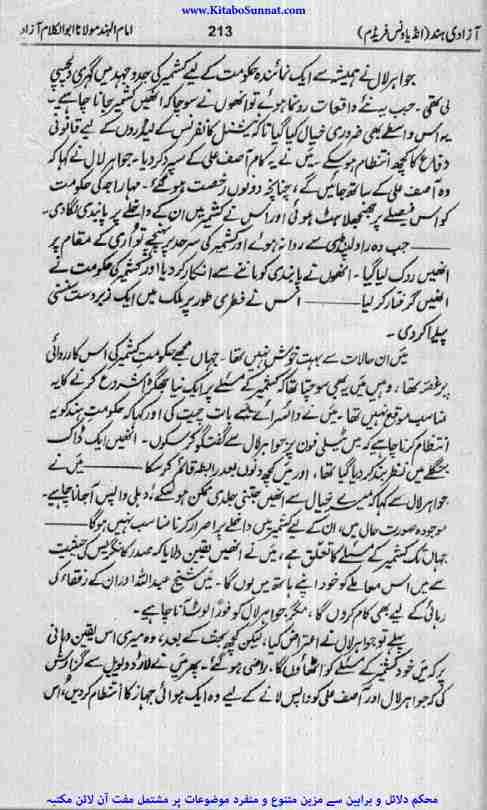 www.KitaboSunnat.com
آزادیِ ہند (انڈیا ونس فریڈم)
213
امام الہند مولانا ابوالکلام آزاد
جواہر لال نے ہمیشہ سے ایک نمائندہ حکومت کے لیے کشمیر کی جدوجہد میں گہری دلچسپی
لی تھی۔ جب یہ نئے واقعات رونما ہوئے تو انھوں نے سوچا کہ انھیں کشمیر جانا چاہیے۔
یہ اس واسطے بھی ضروری خیال کیا گیا تاکہ نیشنل کانفرنس کے لیڈروں کے لیے قانونی
دفاع کا کچھ انتظام ہو سکے۔ میں نے یہ کام آصف علی کے سپرد کر دیا۔ جواہر لال نے کہا کہ
وہ آصف علی کے ساتھ جائیں گے، چنانچہ دونوں رخصت ہو گئے۔ مہاراجہ کی حکومت
کو اس فیصلے پر جھنجھلاہٹ ہوئی اور اس نے کشمیر میں ان کے داخلے پر پابندی لگا دی۔
——— جب وہ راولپنڈی سے روانہ ہوئے اور کشمیر کی سرحد پر پہنچے تو اُری کے مقام پر
انھیں روک لیا گیا۔ انھوں نے پابندی کو ماننے سے انکار کر دیا اور کشمیر کی حکومت نے
انھیں گرفتار کر لیا ——— اس نے فطری طور پر ملک میں ایک زبردست سنسنی
پیدا کر دی۔
میں ان حالات سے بہت خوش نہیں تھا۔ جہاں مجھے حکومتِ کشمیر کی اس کارروائی
پر غصہ تھا، وہیں میں یہ بھی سوچتا تھا کہ کشمیر کے مسئلے پر ایک نیا جھگڑا شروع کرنے کا یہ
مناسب موقع نہیں تھا۔ میں نے وائسرائے سے بات چیت کی اور کہا کہ حکومتِ ہند کو یہ
انتظام کرنا چاہیے کہ میں ٹیلی فون پر جواہر لال سے گفتگو کر سکوں۔ انھیں ایک ڈاک
بنگلے میں نظر بند کر دیا گیا تھا، اور میں کچھ دنوں بعد رابطہ قائم کر سکا ——— میں نے
جواہر لال سے کہا کہ میرے خیال سے انھیں جتنی جلدی ممکن ہو سکے، دہلی واپس آ جانا چاہیے۔
موجودہ صورت حال میں، ان کے لیے کشمیر میں داخلے پر اصرار کرنا مناسب نہیں ہوگا ———
جہاں تک کشمیر کے مسئلے کا تعلق ہے، میں نے انھیں یقین دلایا کہ صدر کانگریس کی حیثیت
سے میں اس معاملے کو خود اپنے ہاتھ میں لوں گا۔ میں شیخ عبداللہ اور ان کے رفقاء کی
رہائی کے لیے بھی کام کروں گا، مگر جواہر لال کو فوراً لوٹ آنا چاہیے۔
پہلے تو جواہر لال نے اعتراض کیا، لیکن کچھ بحث کے بعد، وہ میری اس یقین دہانی
پر کہ میں خود کشمیر کے مسئلے کو اٹھاؤں گا، راضی ہو گئے۔ پھر میں نے لارڈ ویول سے گزارش
کی کہ جواہر لال اور آصف علی کو واپس لانے کے لیے وہ ایک ہوائی جہاز کا انتظام کر دیں، اس
محکم دلائل و براہین سے مزین متنوع و منفرد موضوعات پر مشتمل مفت آن لائن مکتبہ